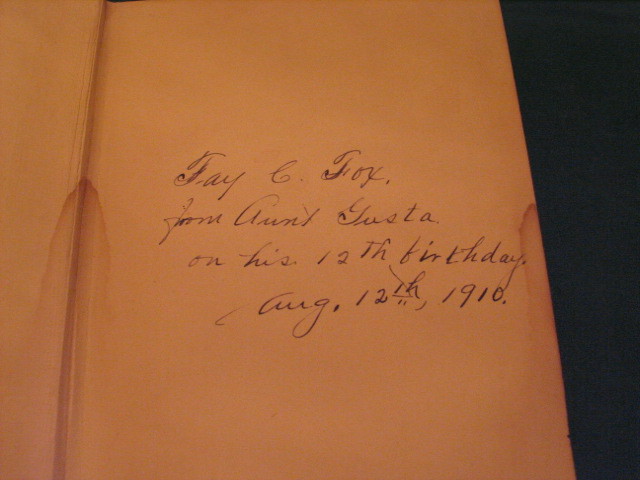 Fay C. Fox.
from Aunt Gusta
on his 12th birthday.
Aug. 12th, 1910.